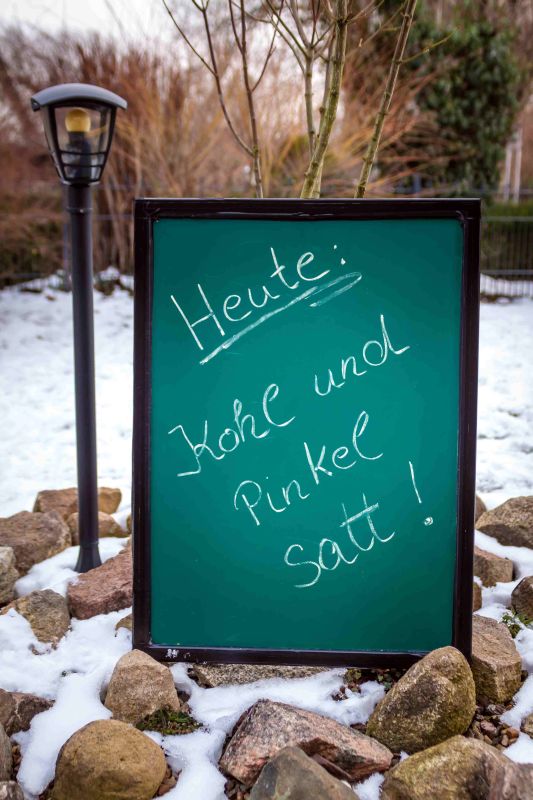 Heute:
Kohl und
Pinkel
Satt!